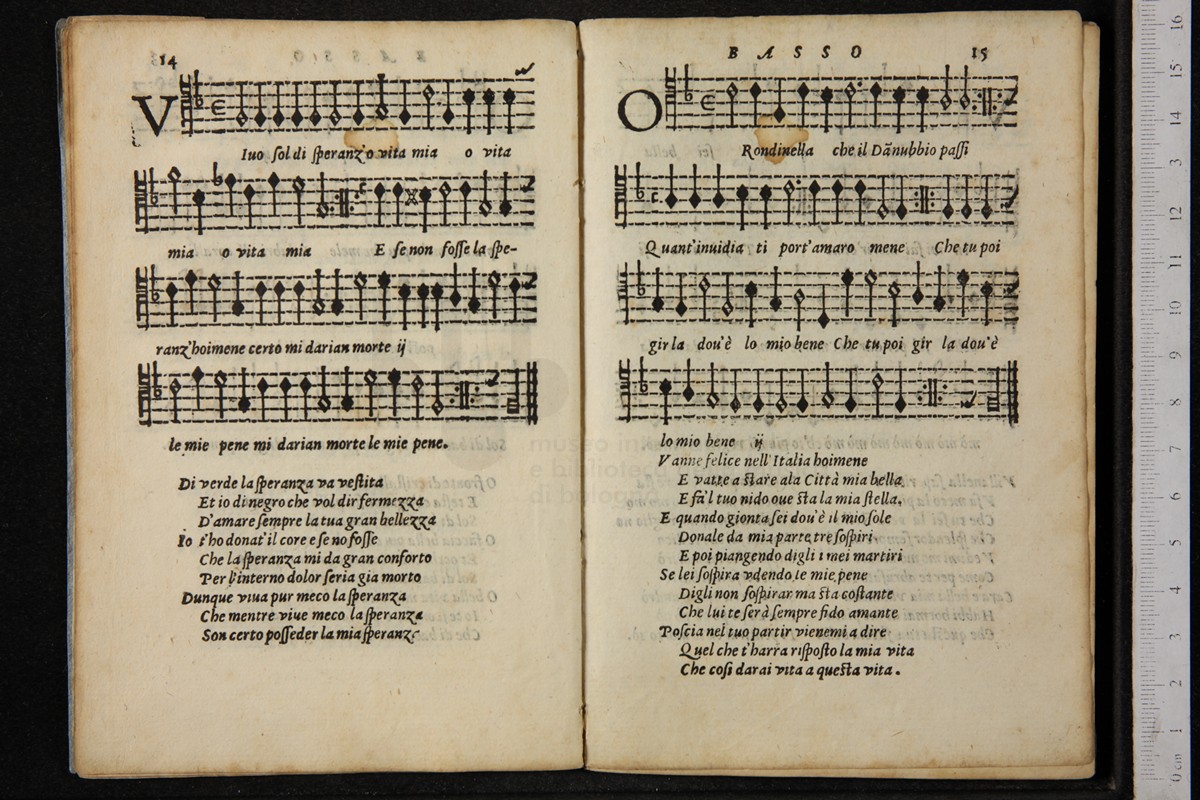 14
V
Iuo sol di speranz'o vita mia o vita
mia o vita mia E se non fosse la spe-
ranz'hoimene certo mi darian morte ij
le mie pene mi darian morte le mie pene.
Di verde la speranza va vestita
Et io di negro che vol dir fermezza
D'amare sempre la tua gran bellezza
Io t'ho donat'il core e se no fosse
Che la speranza mi da gran conforto
Per l'interno dolor seria gia morto
Dunque viua pur meco la speranza
Che mentre viue meco la speranza
Son certo posseder la mia speranza
BASSO 15
O
Rondinella che il Dãnubbio passi
Quant'inuidia ti port'amaro mene Che tu poi
gir la dou'è lo mio bene Che tu poi gir la dou'è
lo mio bene ij
Vanne felice nell'Italia hoimene
E vatte a stare ala Città mia bella
E fa'l tuo nido oue sta la mia stella.
E quando gionta sei dou'è il mio sole
Donale da mia parte tre sospiri
E poi piangendo digli i mei martiri
Se lei sospira vdendo le mie pene
Digli non sospirar ma sta costante
Che lui te serà sempre fido amante
Poscia nel tuo partir vienemi a dire
Quel che t'harra risposto la mia vita
Che cosi darai vita a questa vita.
museo
e biblioteca
di bologna
0 cm 1 2 3 4 5 6 7 8 9 10 11 12 13 14 15 16